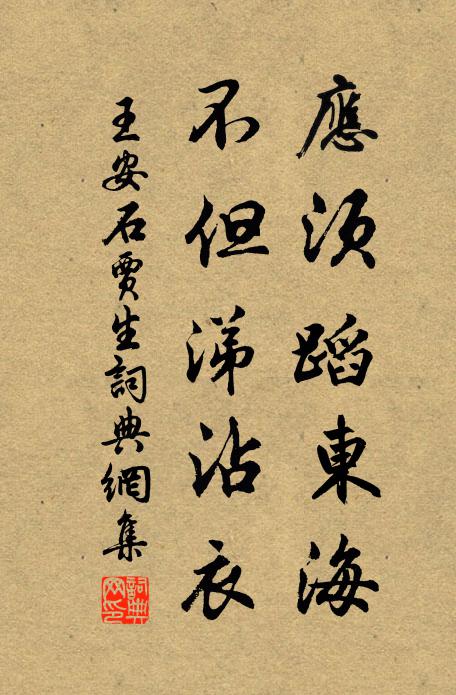 應須蹈東海
不但涕沾衣
王安石賈生詞典網集
詞典網印